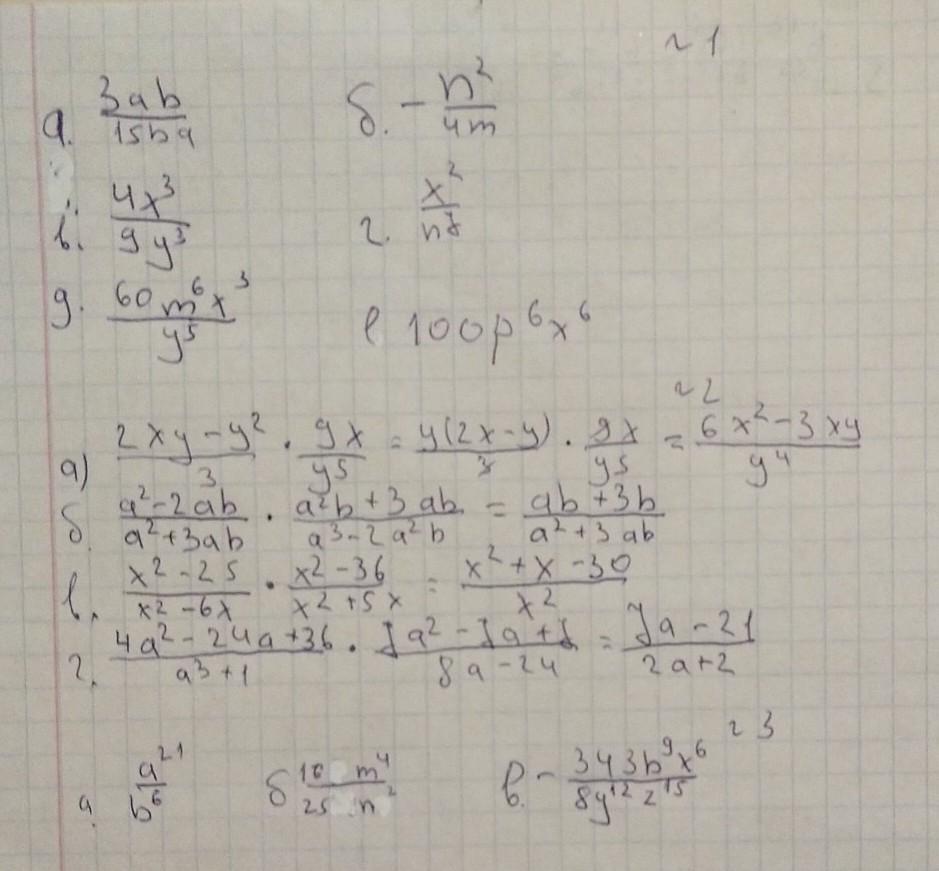 ~ 1
а. 3ab/15ba б. - n²/4m
в. 4x³/9y³ г. x²/n⁷
д. 60m⁶x³/y⁵ е 100p⁶x⁶
~ 2
а) (2xy - y²)/3 · 9x/y5 = y(2x - y)/3 · 9x/y5 = (6x² - 3xy)/y⁴
б. (a² - 2ab)/(a² + 3ab) · (a²b + 3ab)/(a³ - 2a²b) = (ab + 3b)/(a² + 3ab)
в. (x² - 25)/(x² - 6x) · (x² - 36)/(x² + 5x) = (x² + x - 30)/x²
г. (4a² - 24a + 36)/(a³ + 1) · (7a² - 7a + 7)/(8a - 24) = (7a - 21)/(2a + 2)
~ 3
а. a²¹/b⁶ б 16 m⁴/25 n² в. - 343b⁹x⁶/8y¹²z¹⁵